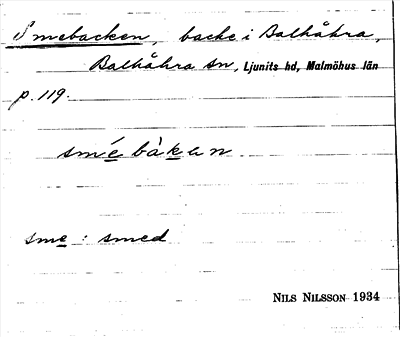 Smebacken, backe i Balkåkra,
Balkåkra sn, Ljunits hd, Malmöhus län
p. 119.
smé bàkan
sme : smed
NILS NILSSON 1934